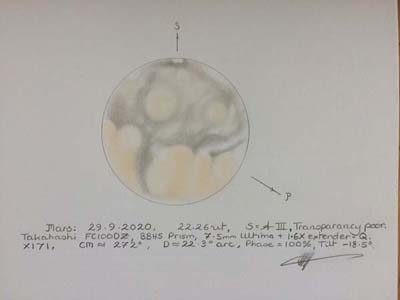 S
P
Mars: 29.9.2020, 22.26ut, S=A-III, Transparancy poor.
Takahashi FC100DZ, BBHS Prism, 7.5mm Ultima + 1.6X extender-Q.
X171, CM = 272°, D = 22.3" arc, Phase = 100%, Tilt -18.5°.